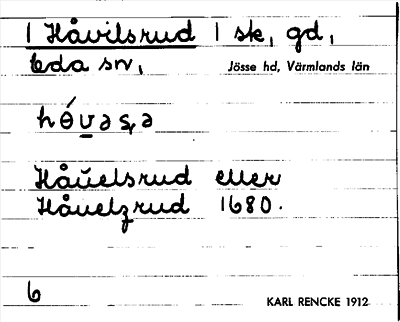 1 Håvilsrud 1 sk, gd,
Eda sn,
Jösse hd, Värmlands län
Håŭelsrud eller
Håuelzrud 1680.
6
KARL RENCKE 1912